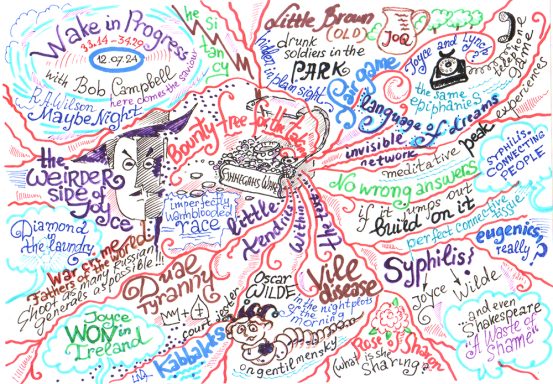 Wake in Progress
33.14 - 34.29
12.07.24
with Bob Campbell
here comes the saviour
R.A.Wilson
Maybe Night
he Si
tan
cy
Little Brown
(OLD)
JOQ
drunk
soldiers in the
PARK
hidden
in plain sight
Pair game
Joyce and Lynch
the same
epiphanies
telephone
game
language of dreams
invisible
network
meditative peak experiences
SYPHILIS-
CONNECTING
PEOPLE
Bounty free for the
FINNEGANS WAKE
the
WEIRDER
side of
JOYCE
imperfectly
warmblooded
race
little
tendrils
within
the text
No wrong answers
if it jumps out
build on it
perfect connective tissue
eugenics,
really?
Diamond
in the laundry
War crime
Fathers of the World!
Shoot as many Russian
generals as possible!!!
Dual
Tyranny
court jester
Joyce
WON in
Ireland
Kabbalets
Oscar
WILDE
in the night plots of
the morning
on gentilmensky
Vile
disease
Rose of Sharon
(what is she
Sharing?)
Syphilis?
Joyce
Wilde
and even
Shakespeare
"A Waste of
Shame"